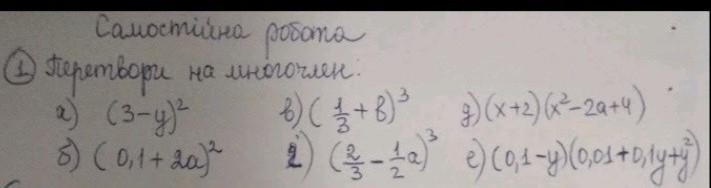 Самостійна робота
① Перетвори на многочлен:
а) (3-y)² в) (1/3+b)³ д) (x+2)(x²-2a+4)
б) (0,1+2a)² г) (2/3-1/2a)³ е) (0,1-y)(0,01+0,1y+y²)